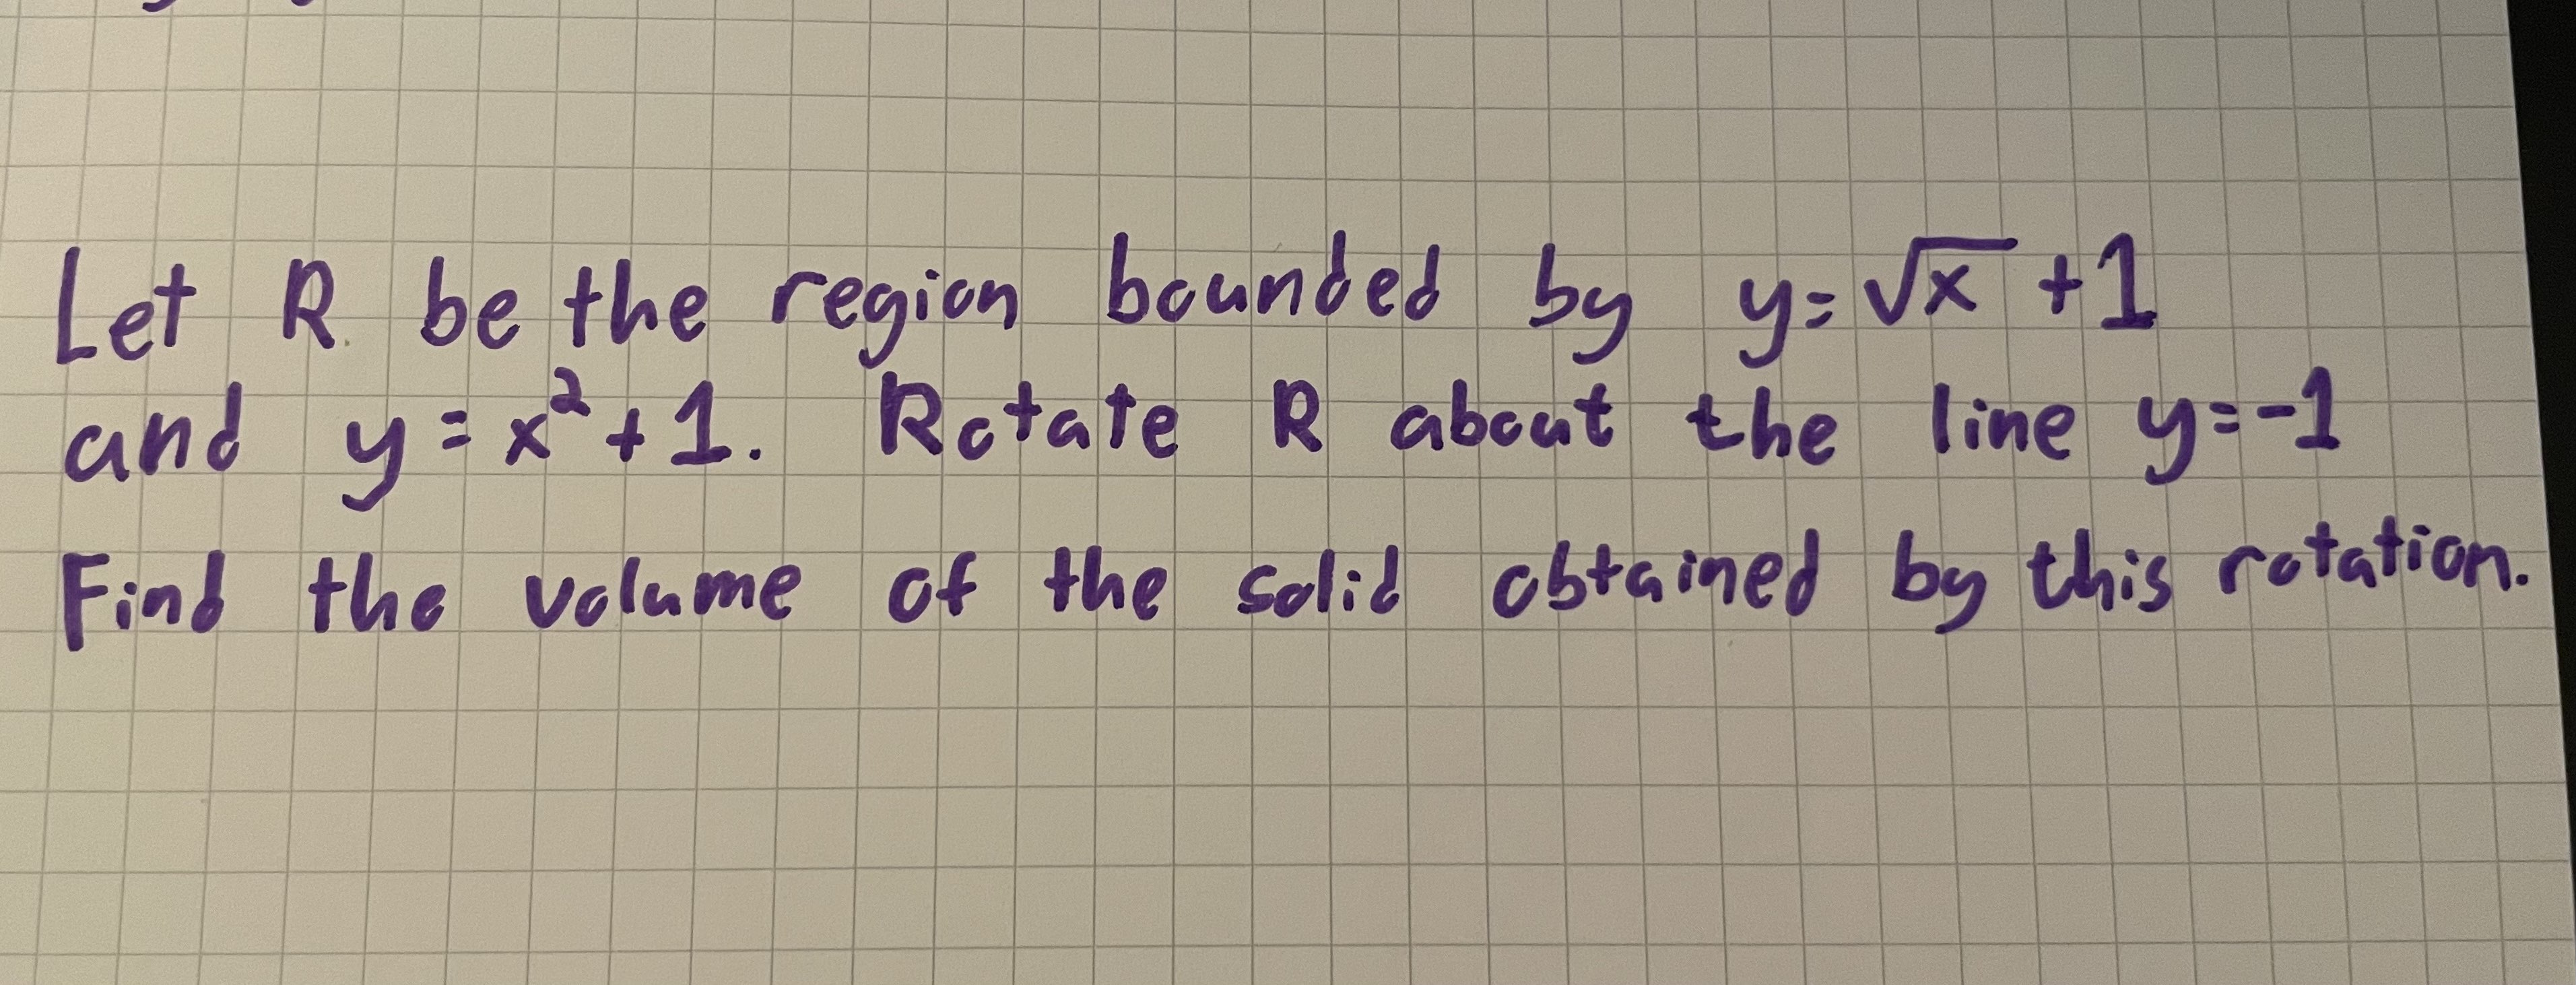 Let R be the region bounded by y=√x +1
and y=x²+1. Rotate R about the line y=-1
Find the volume of the solid obtained by this rotation.